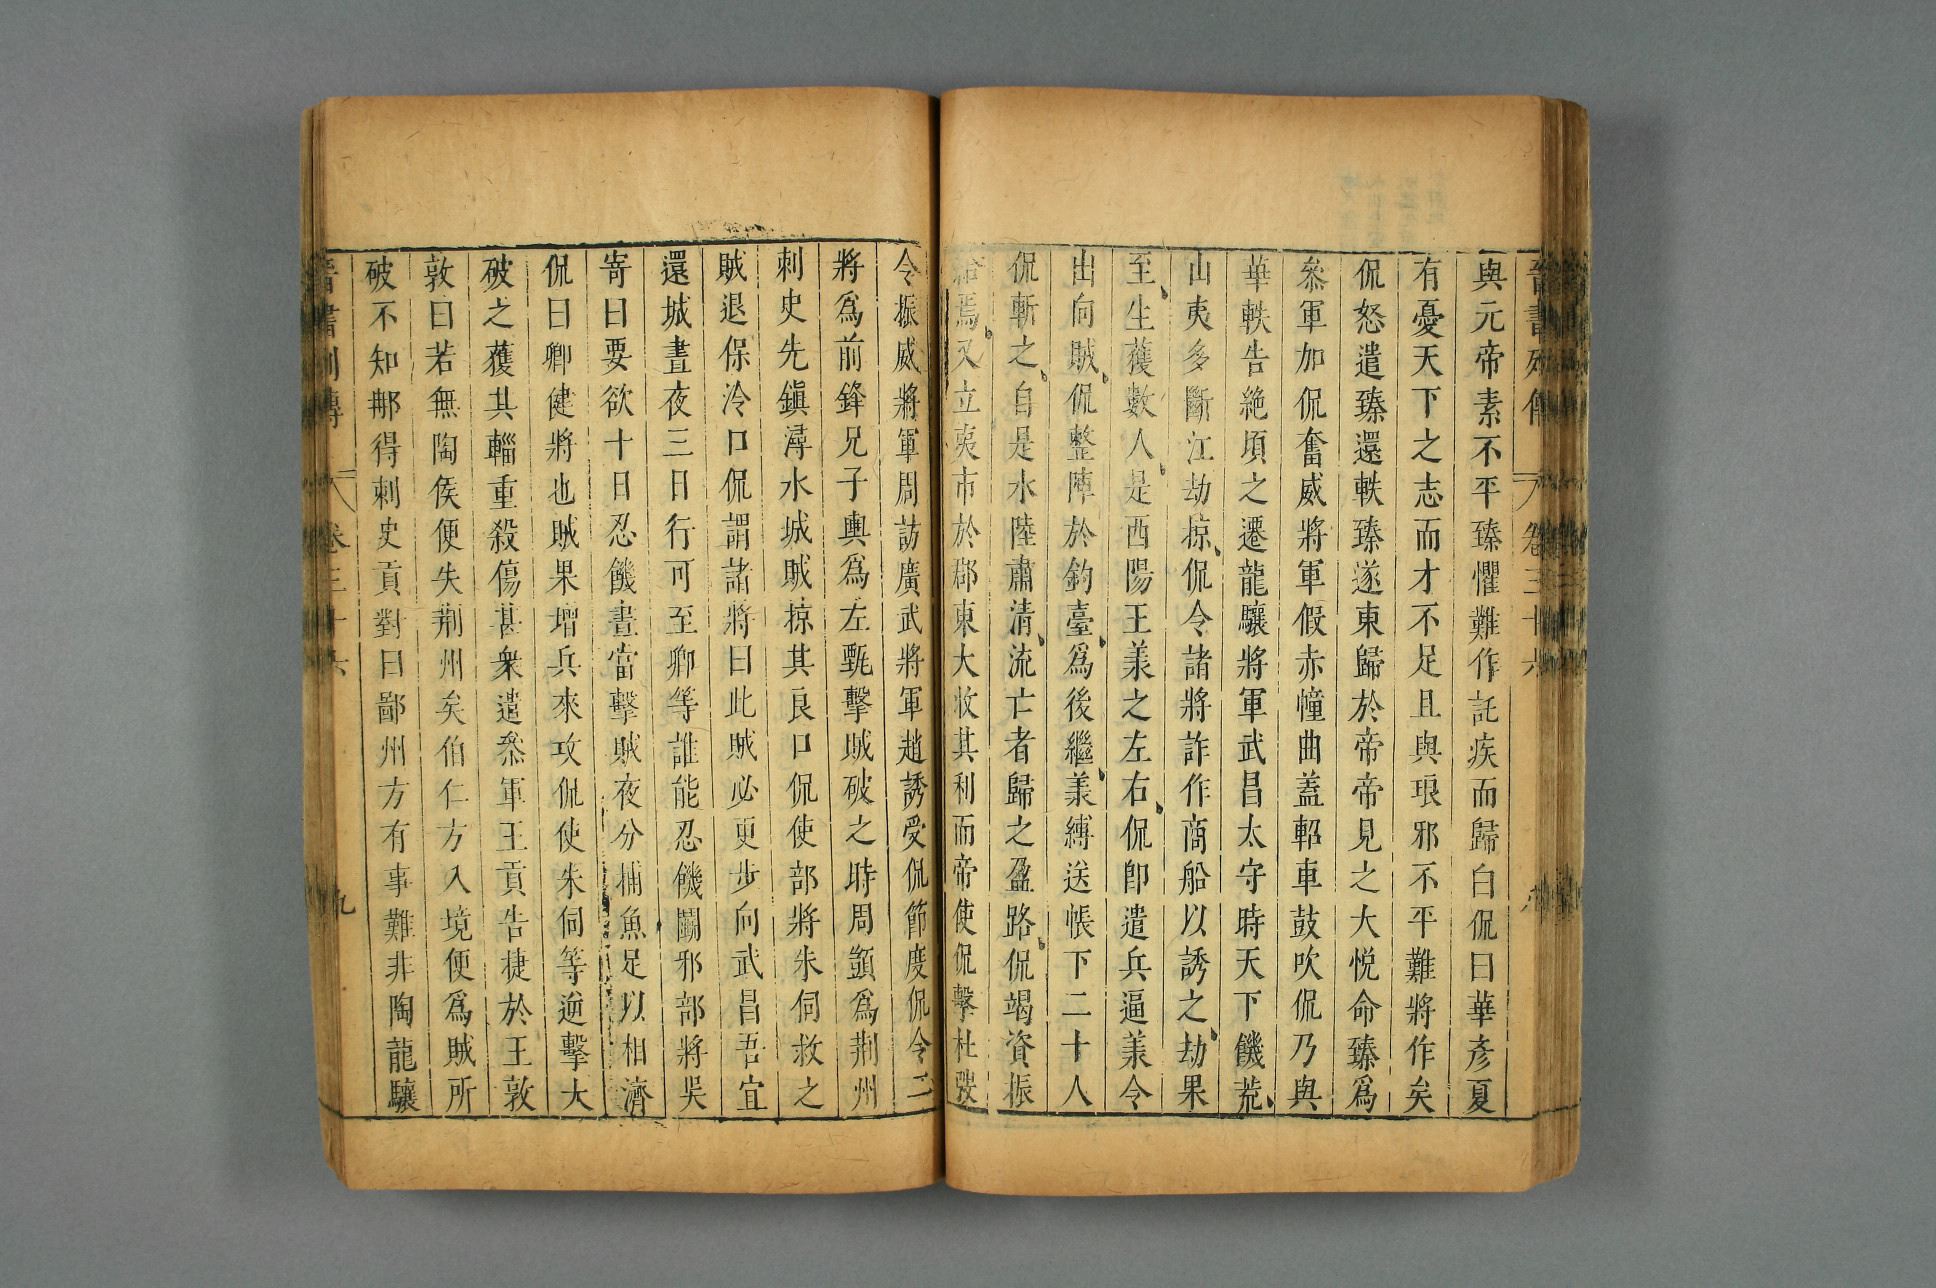 晉書列傳 卷三十六
與元帝素不平臻懼難作託疾而歸白侃曰華彥夏
有憂天下之志而才不足且與琅邪不平難將作矣
侃怒遣臻還軼臻遂東歸於帝帝見之大悅命臻爲
叅軍加侃奮威將軍假赤幢曲蓋軺車鼓吹侃乃與
華軼告絶頃之遷龍驤將軍武昌太守時天下饑荒
山夷多斷江劫掠侃令諸將詐作商船以誘之劫果
至生獲數人是西陽王羕之左右侃卽遣兵逼羕令
出向賊侃整陣於釣臺爲後繼羕縛送帳下二十人
侃斬之自是水陸肅清流亡者歸之盈路侃竭資振
給焉又立夷市於郡東大收其利而帝使侃擊杜弢
令振威將軍周訪廣武將軍趙誘受侃節度侃令二
將爲前鋒兄子輿爲左甄擊賊破之時周顗爲荆州
刺史先鎭潯水城賊掠其良口侃使部將朱伺救之
賊退保泠口侃謂諸將曰此賊必更步向武昌吾宜
還城晝夜三日行可至卿等誰能忍饑鬭邪部將吳
寄曰要欲十日忍饑晝當擊賊夜分捕魚足以相濟
侃曰卿健將也賊果增兵來攻侃使朱伺等逆擊大
破之獲其輜重殺傷甚衆遣叅軍王貢告捷於王敦
敦曰若無陶侯便失荆州矣伯仁方入境便爲賊所
破不知那得刺史貢對曰鄙州方有事難非陶龍驤
晉書列傳 卷三十六 九